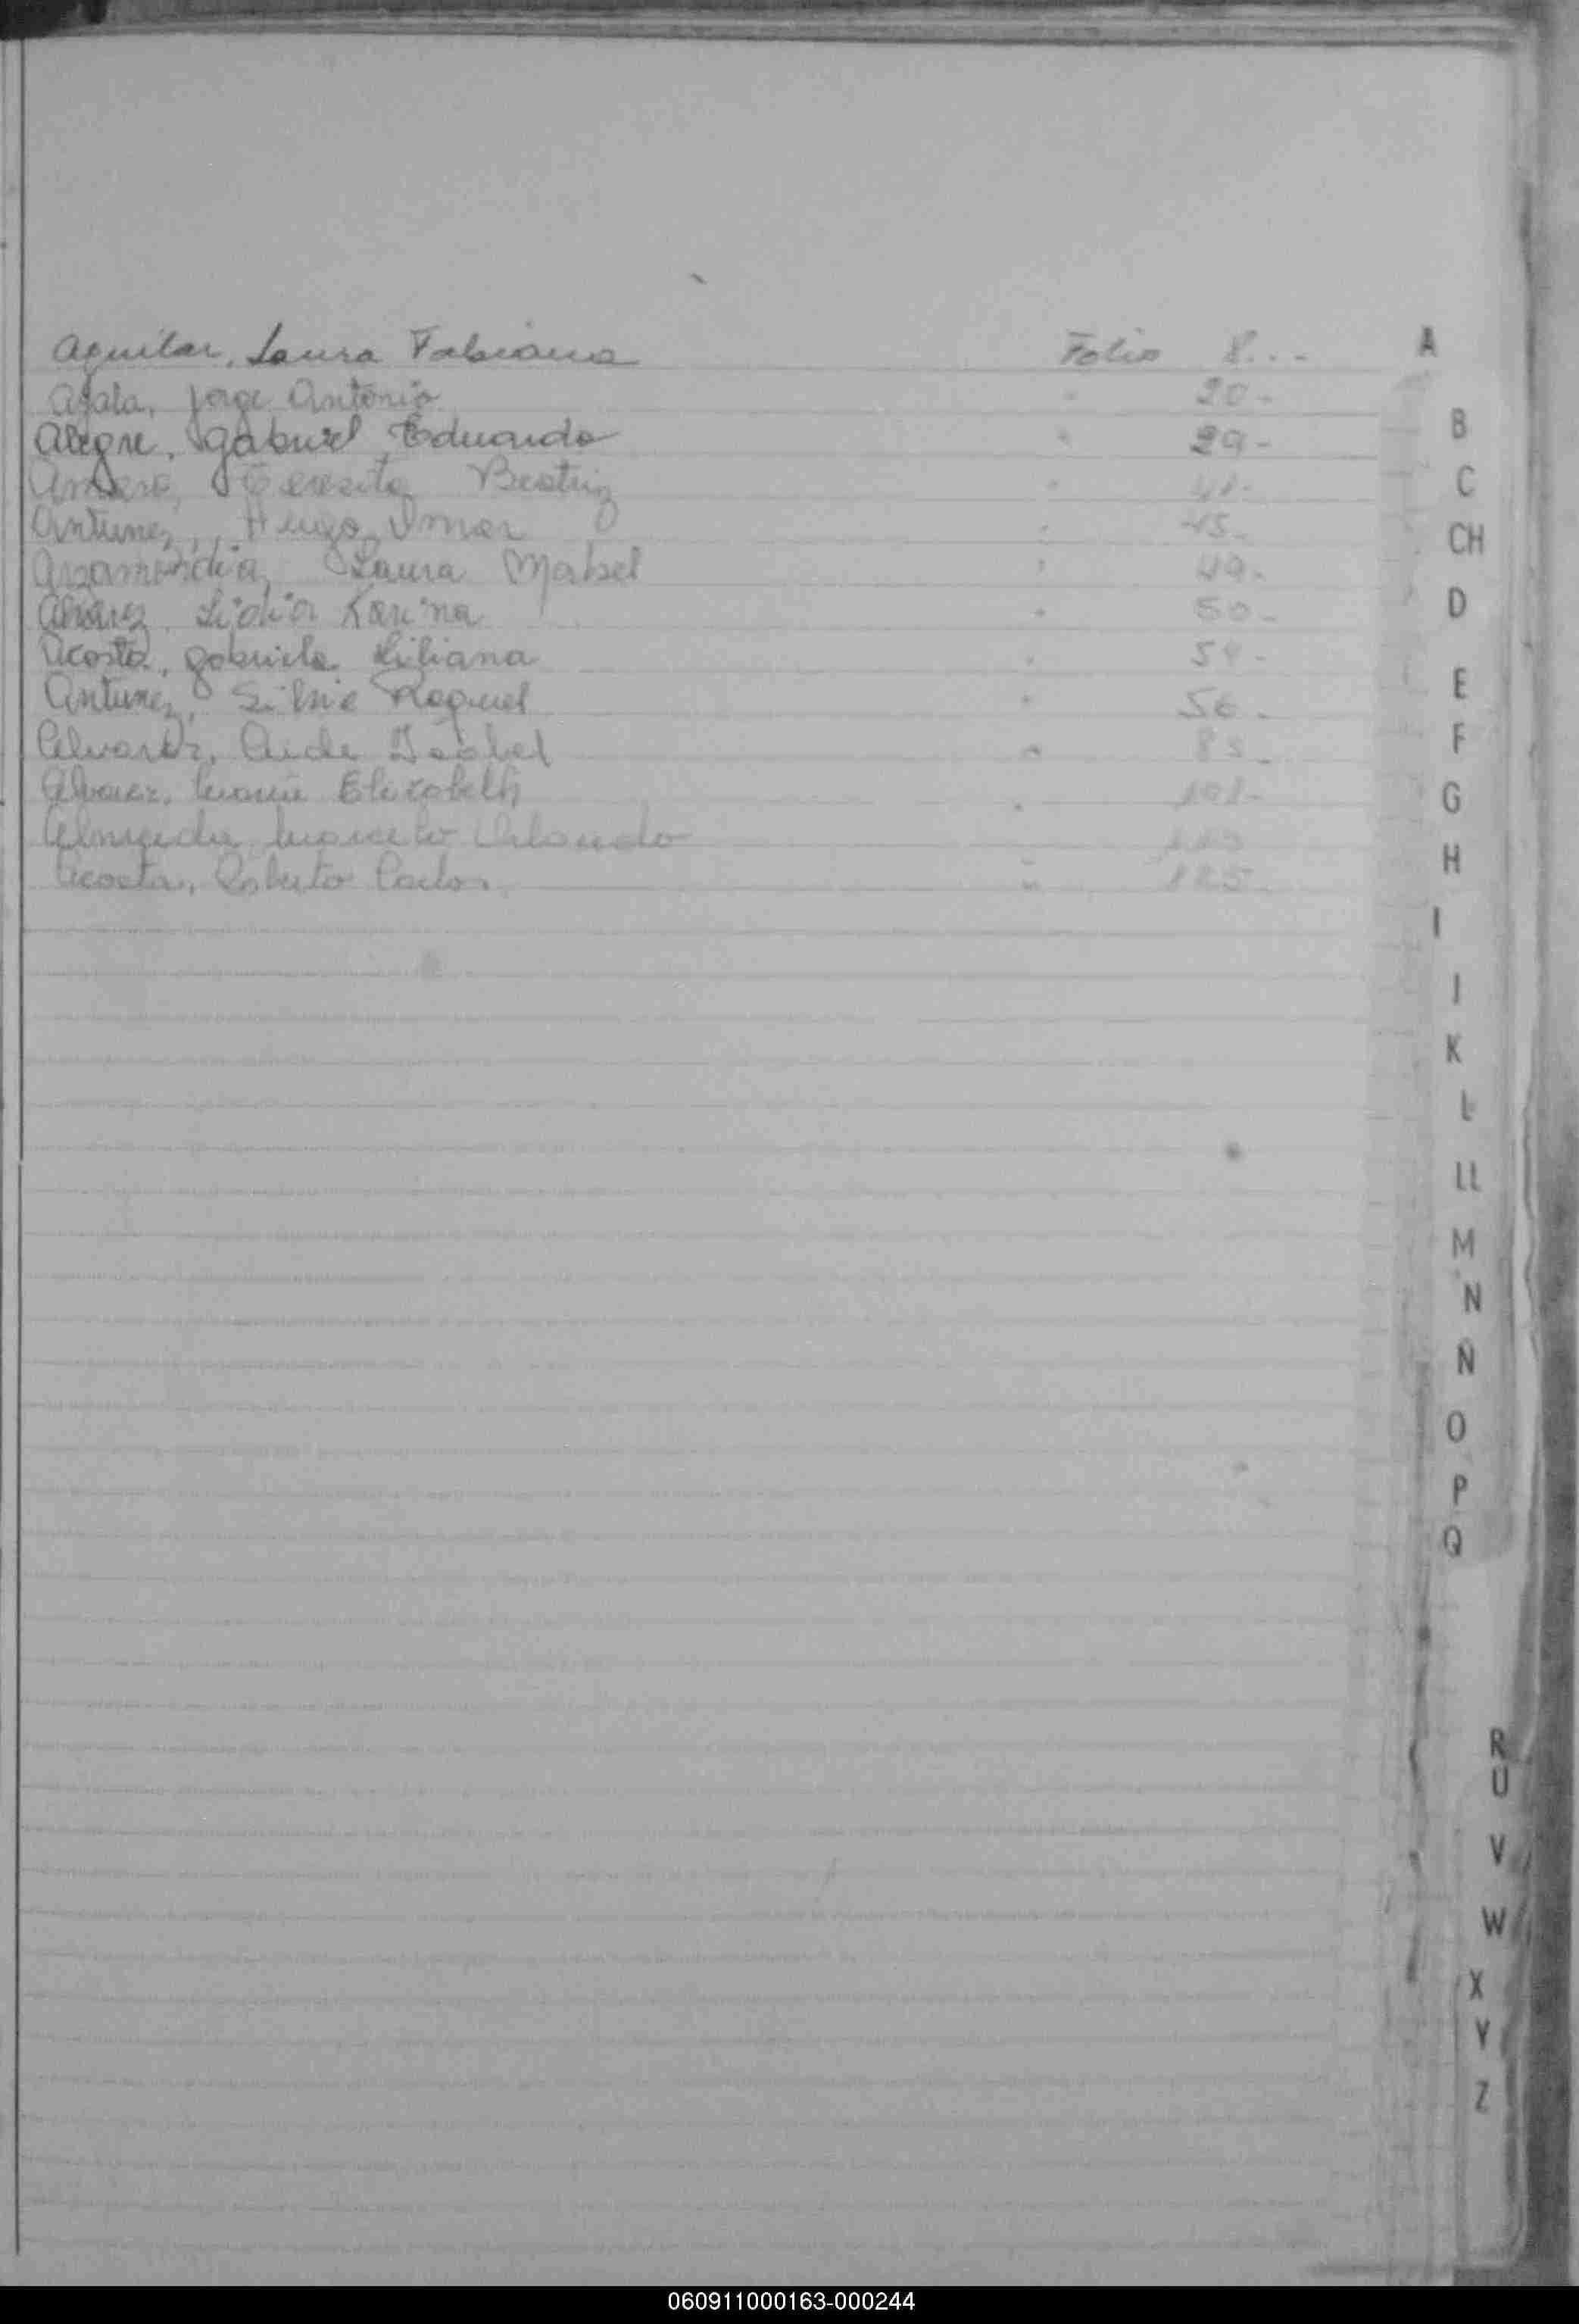 Aguilar, Laura Fabiana Folio 8...
Ayala, Jorge Antonio " 20-
Alegre, Gabriel Eduardo " 29-
Teresita Beatriz " 41-
Antunez, Hugo Omar " 45-
Arzamendia, Laura Mabel " 49-
Alvarez, Lidia Karina " 50-
Acosta, Gabriela Liliana " 54-
Antunez, Silvia Raquel " 56-
Alvarez, Aide Isabel " 83-
Alvarez, María Elizabeth " 101-
Almeida, Marcelo Orlando
Acosta, Roberto Carlos " 125
A
B
C
CH
D
E
F
G
H
I
J
K
L
LL
M
N
Ñ
O
P
Q
R
U
V
W
X
Y
Z
060911000163-000244